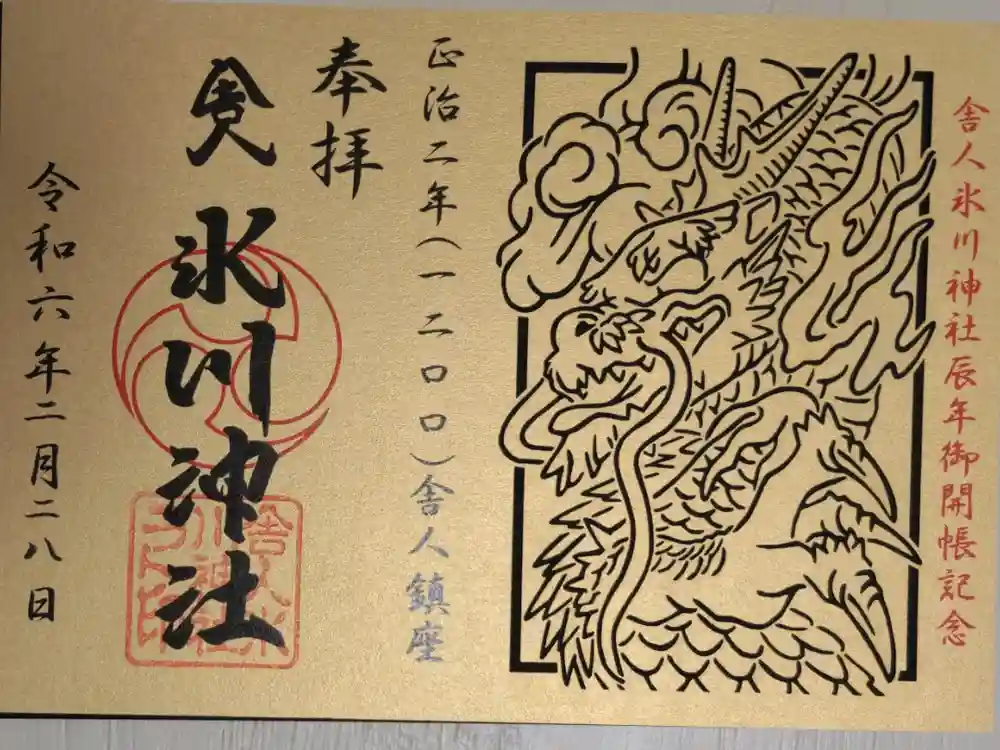 舎人氷川神社辰年御開帳記念
正治二年(一二〇〇)舎人鎮座
奉拝
舎人氷川神社
令和六年二月二八日